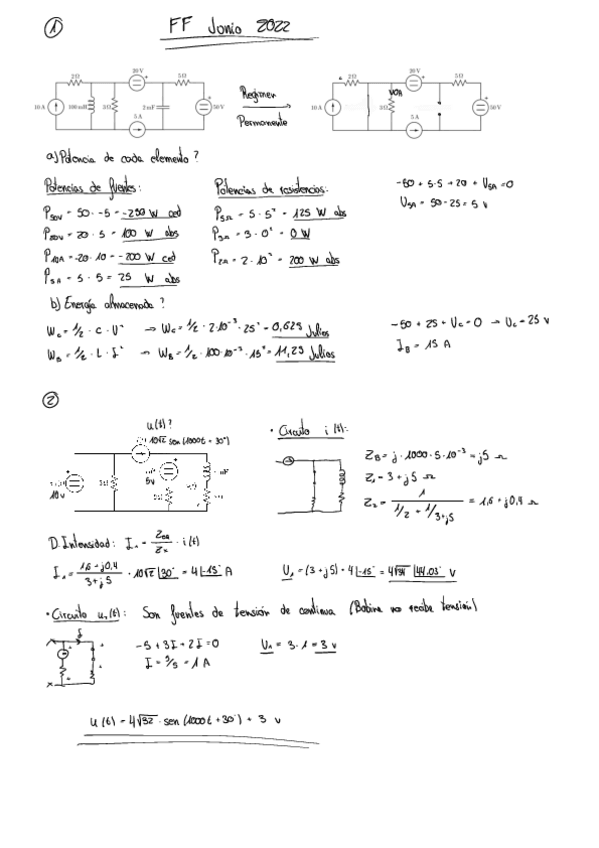 ① FF Junio 2022
2Ω 20 V 5Ω
10 A 100 mH 3Ω 2 mF 50 V
5 A
Regimen
Permanente
2Ω 20 V 5Ω
10 A 3Ω 50 V
5 A
a) Potencia de cada elemento?
Potencias de fuentes:
P50V = 50 · -5 = -250 W ced
P20V = 20 · 5 = 100 W abs
P10A = -20 · 10 = -200 W ced
P5A = 5 · 5 = 25 W abs
Potencias de resistencias:
P5Ω = 5 · 5² = 125 W abs
P3Ω = 3 · 0² = 0 W
P2Ω = 2 · 10² = 200 W abs
-50 + 5·5 + 20 + U5A = 0
U5A = 50 - 25 = 5 V
b) Energía almacenada?
Wc = 1/2 · C · U² → Wc = 1/2 · 2·10⁻³ · 25² = 0,625 Julios
WB = 1/2 · L · I² → WB = 1/2 · 100·10⁻³ · 15² = 11,25 Julios
-50 + 25 + Uc = 0 → Uc = 25 V
IB = 15 A
②
u(t)?
10√2 sen(1000t + 30°)
10V
5V
· Circuito i(t):
ZB = j · 1000 · 5·10⁻³ = j5 Ω
Z1 = 3 + j5 Ω
Z2 = 1 / (1/2 + 1/3+j5) = 1,6 + j0,4 Ω
D. Intensidad: I1 = ZEQ/Zx · i(t)
I1 = 1,6 + j0,4 / 3 + j5 · 10√2 |30° = 4 |-15° A
U1 = (3 + j5) · 4 |-15° = 4√34 |44.03° V
· Circuito u1(t): Son fuentes de tensión de continua (Bobina no recibe tensión)
-5 + 3I + 2I = 0
I = 5/5 = 1 A
U1 = 3 · 1 = 3 V
u(t) = 4√32 · sen(1000t + 30°) + 3 V